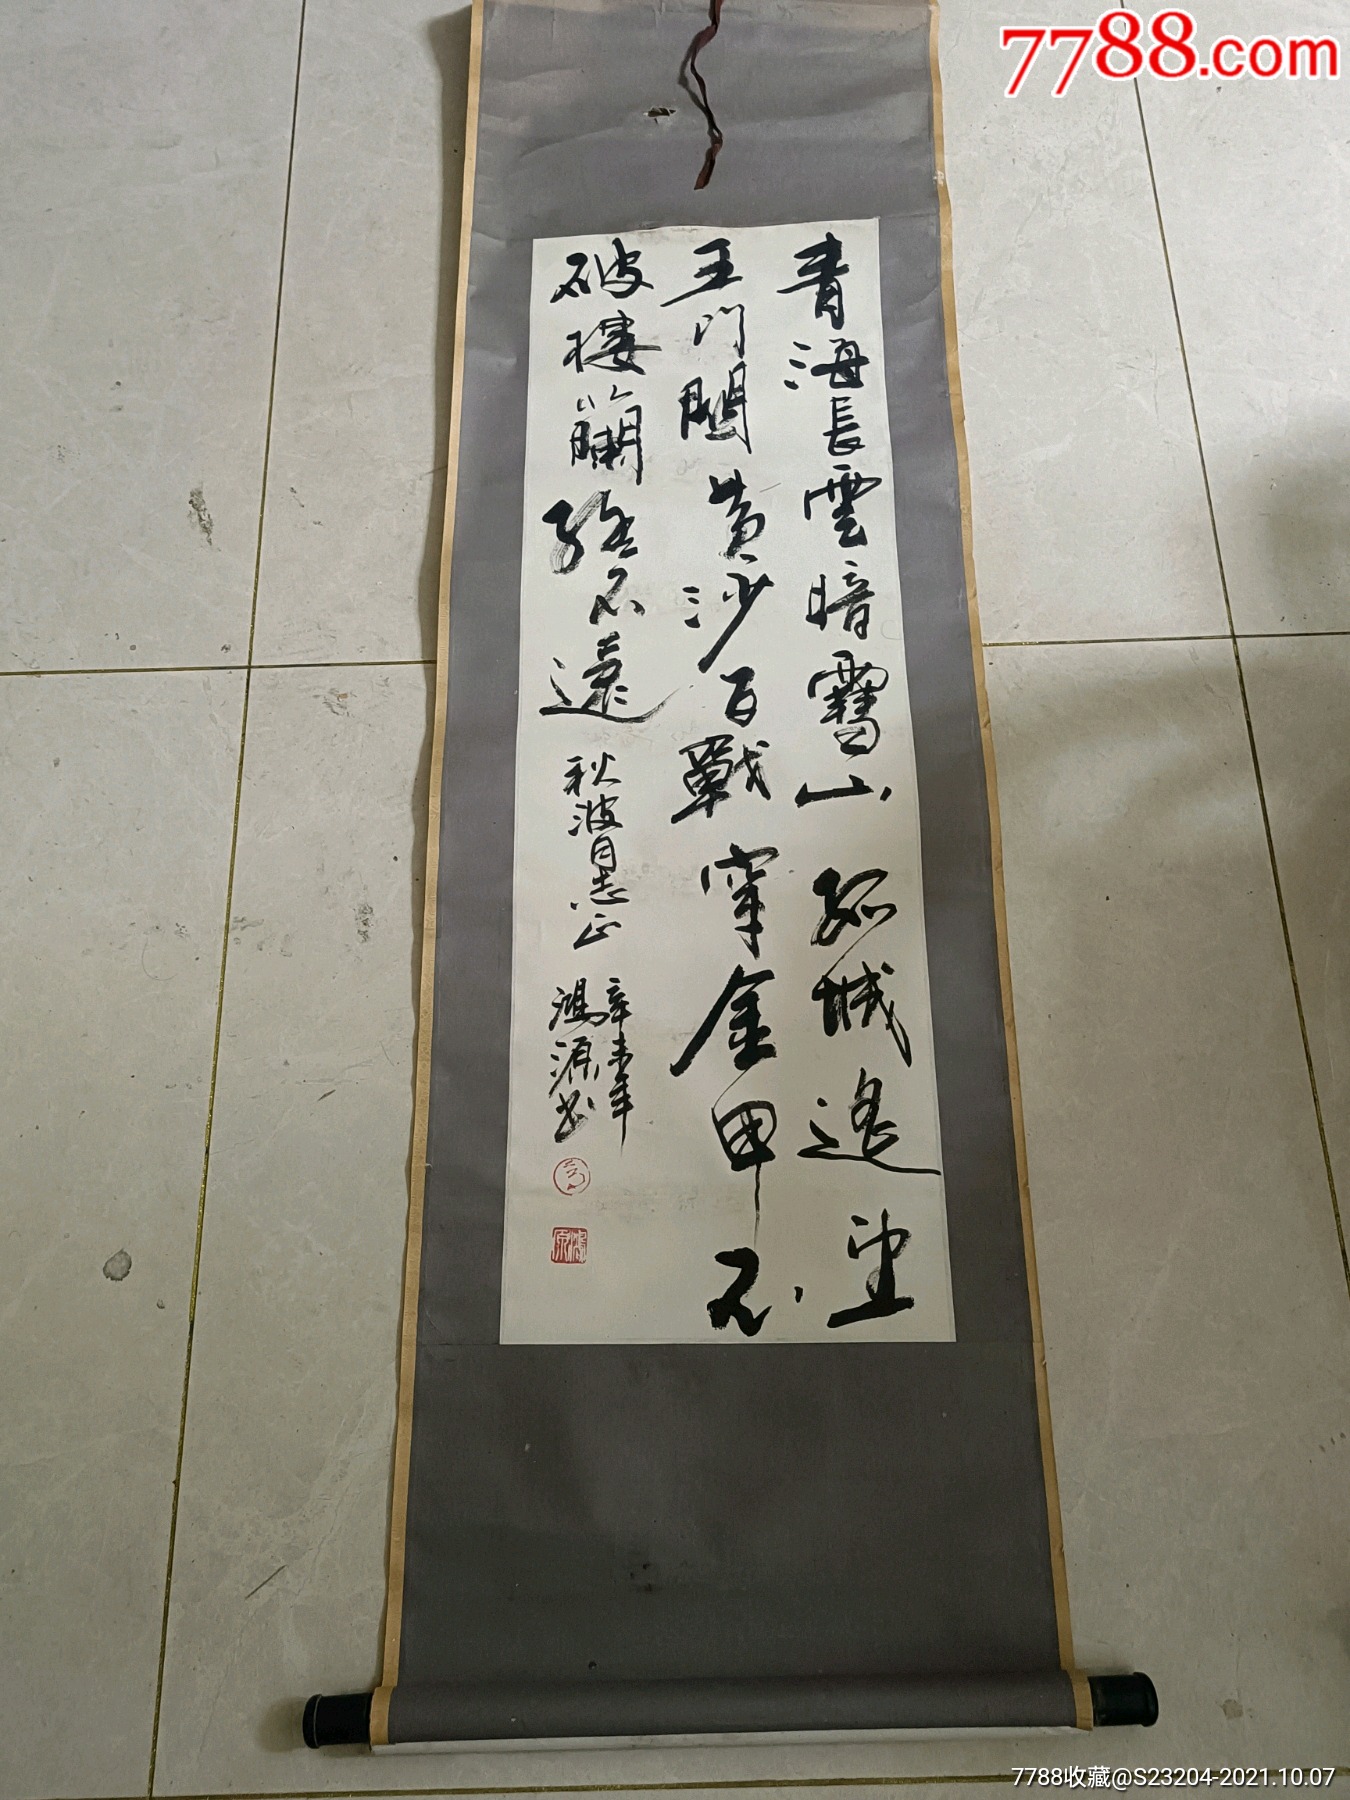 7788.com
青海長雲暗雪山孤城遙望
玉門關黄沙百戰穿金甲不
破樓蘭終不還 秋波同志正
辛未年
鴻源书
鴻原
7788收藏@S23204-2021.10.07